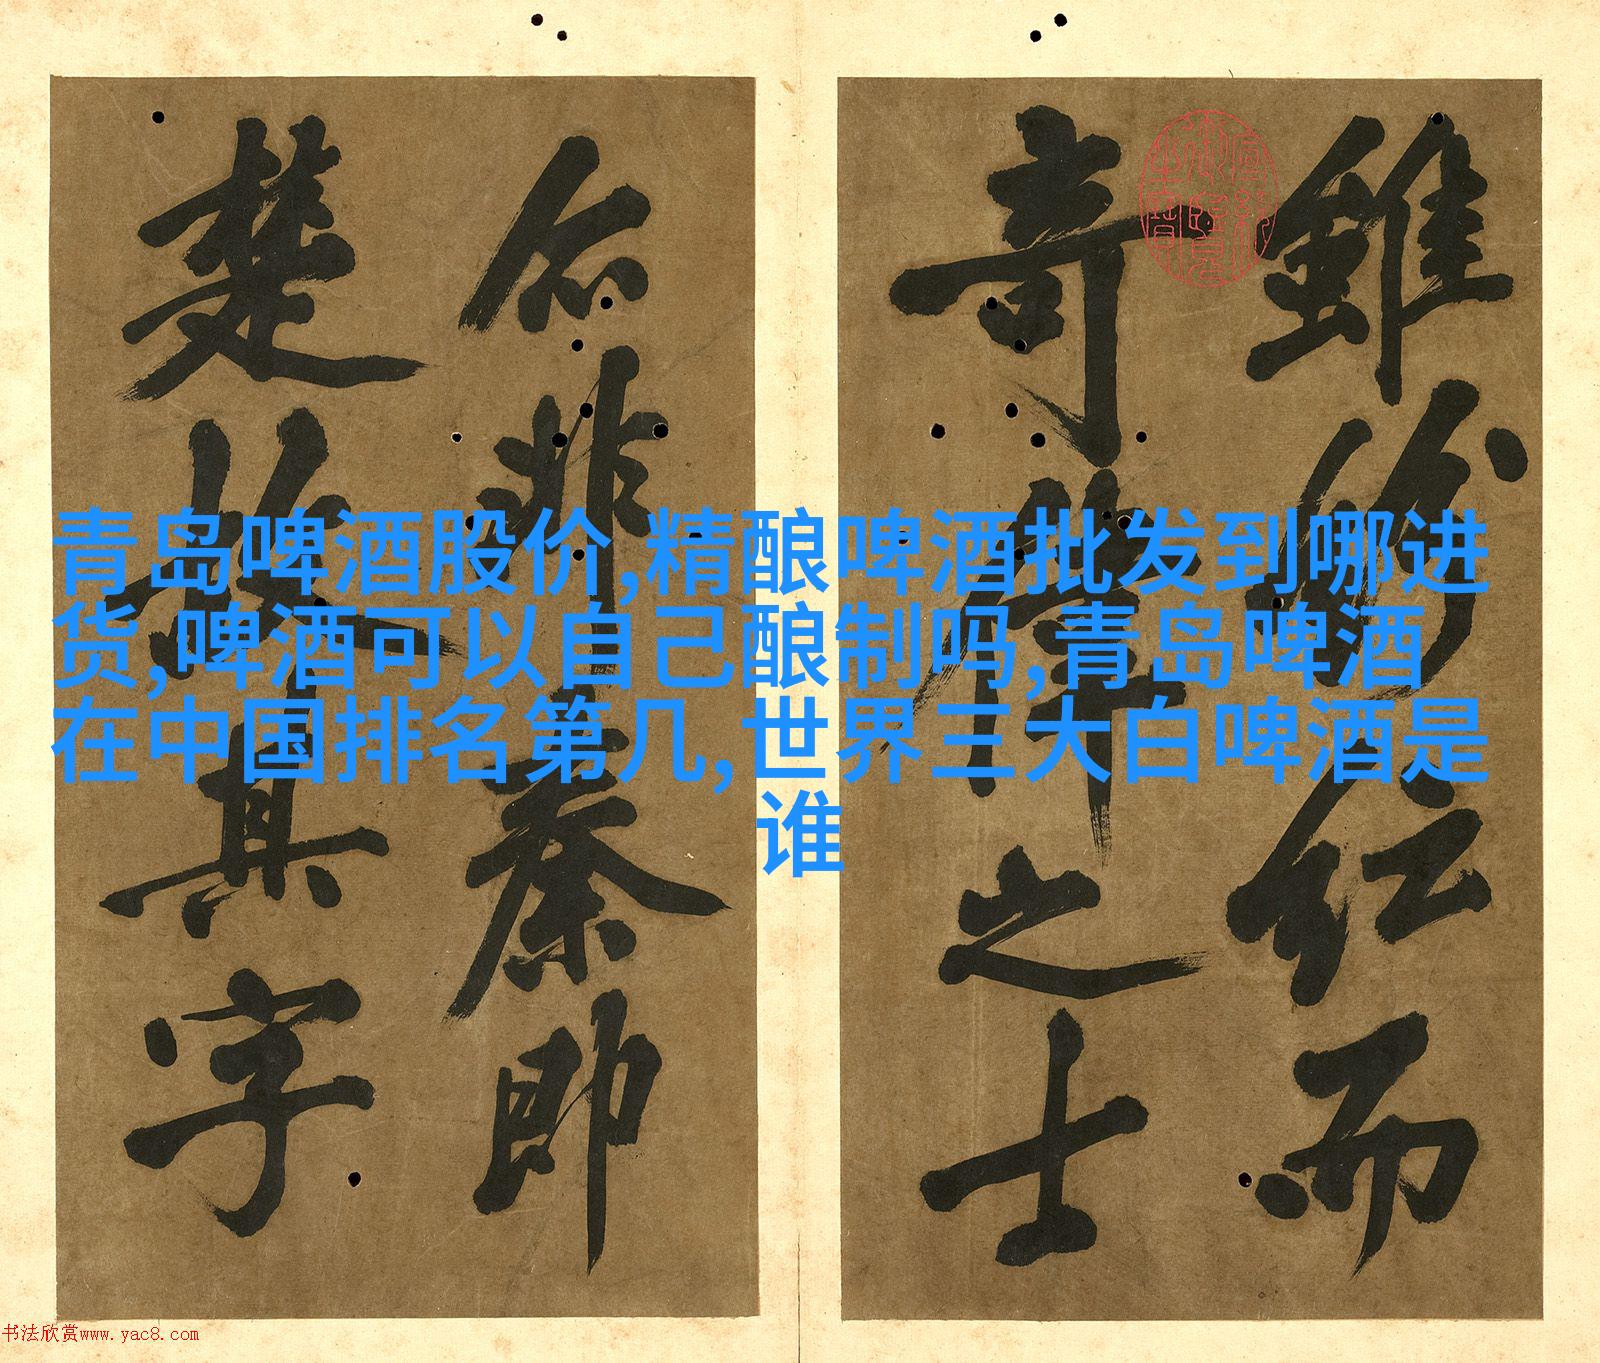 雖紛紜而
奇偉之士
合非秦即
楚故其字
青岛啤酒股价,精酿啤酒批发到哪进
货,啤酒可以自己酿制吗,青岛啤酒
在中国排名第几,世界三大白啤酒是
谁
书法欣赏www.yac8.com